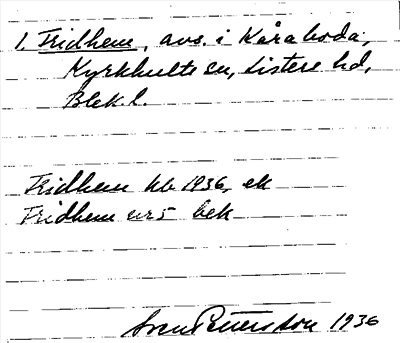 1. Fridhem, avs. i Kåraboda,
Kyrkhults sn, Listers hd,
Blek. l.
Fridhem kb 1936, ek
Fridhem bek
Sven Pettersson 1936